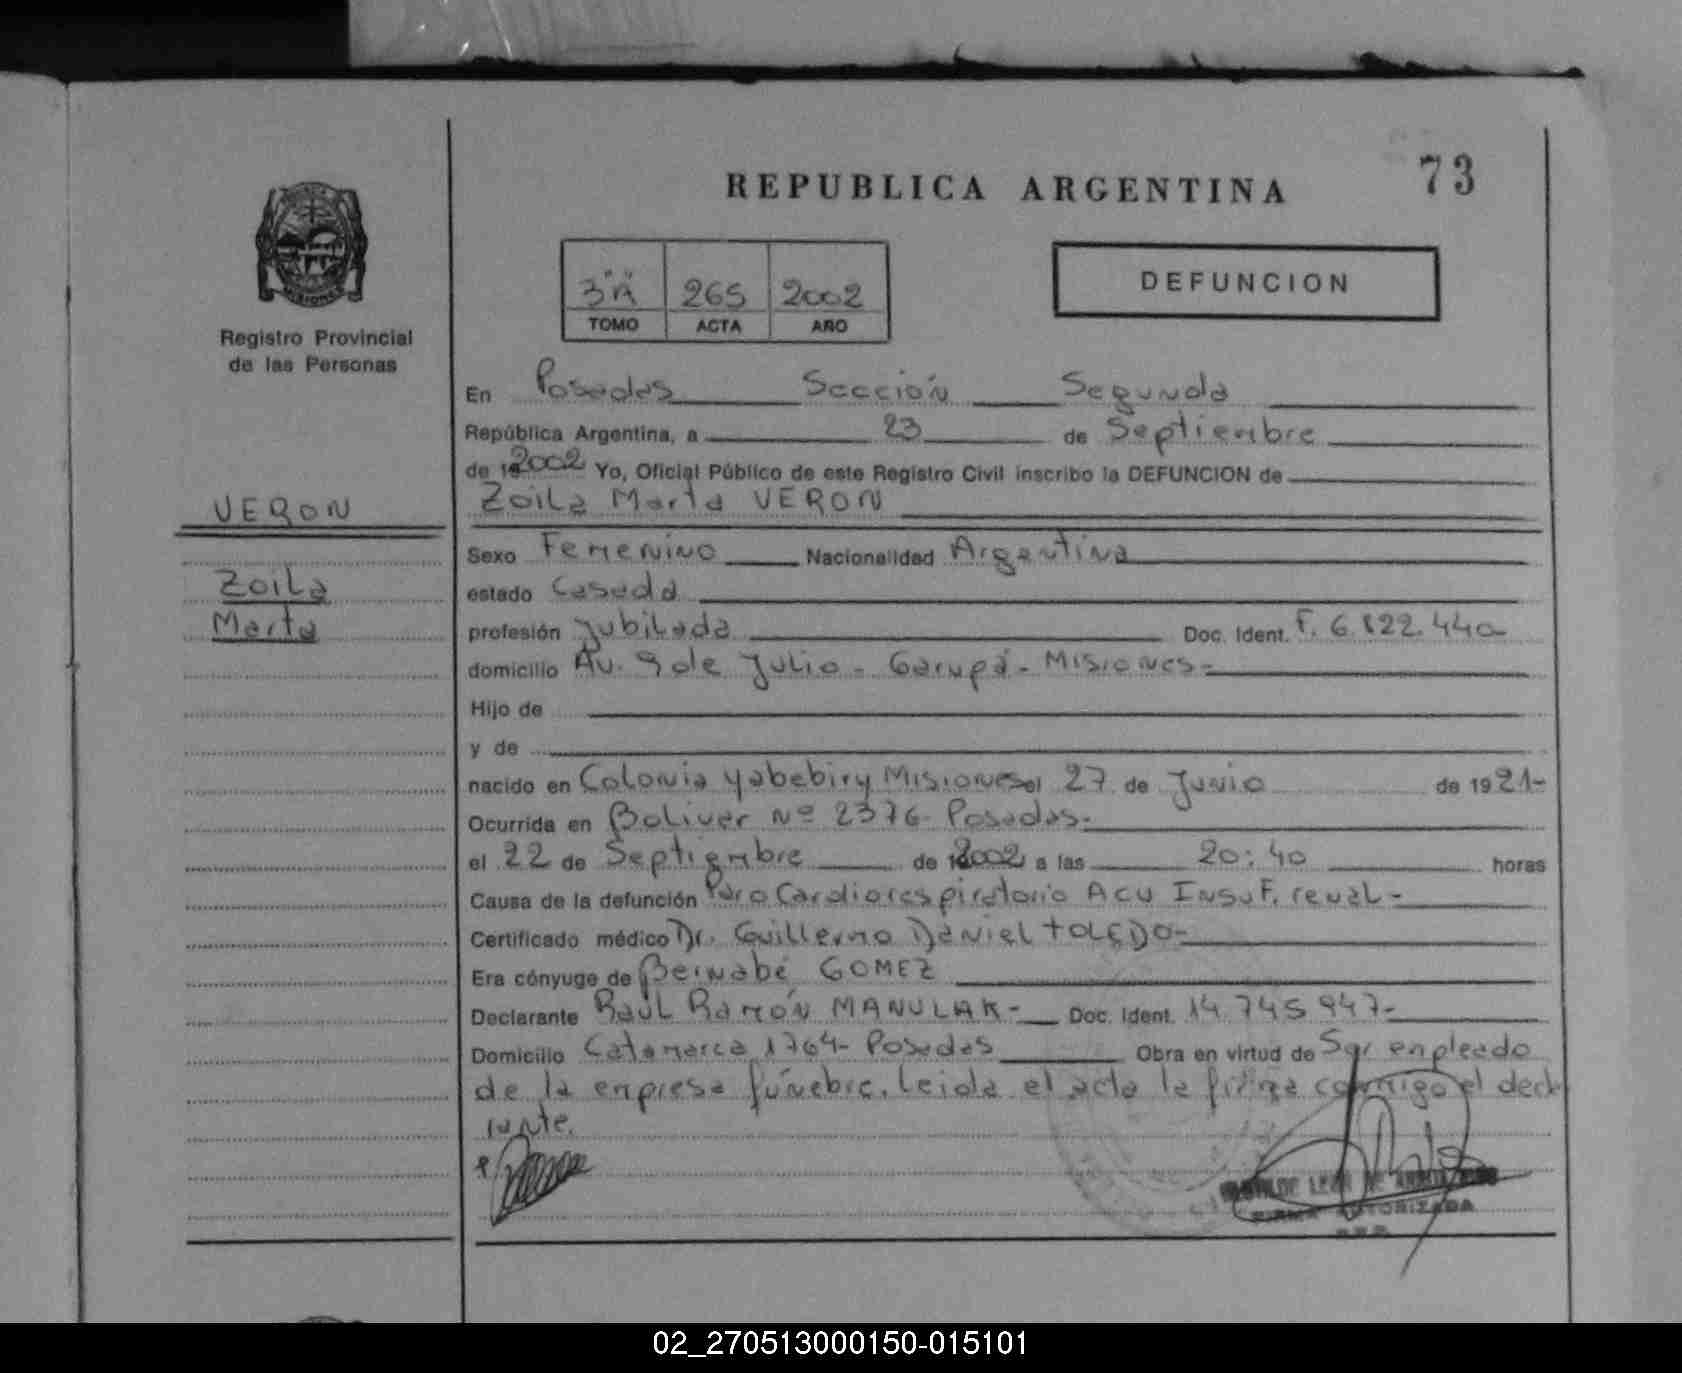 73
REPUBLICA ARGENTINA
MISIONES
Registro Provincial
de las Personas
3"A" 265 2002
TOMO ACTA AÑO
DEFUNCION
En Posadas Sección Segunda
República Argentina, a 23 de Septiembre
de 19 2002 Yo, Oficial Público de este Registro Civil inscribo la DEFUNCION de
Zoila Marta VERON
VERON
Zoila
Marta
Sexo Femenino Nacionalidad Argentina
estado Casada
profesión Jubilada Doc. Ident. F. 6.822.440
domicilio Av. 9 de Julio - Garupá - Misiones -
Hijo de
y de
nacido en Colonia Yabebiry Misiones el 27 de Junio de 1921-
Ocurrida en Bolivar Nº 2376- Posadas-
el 22 de Septiembre de 2002 a las 20:40 horas
Causa de la defunción Paro Cardiorespiratorio ACV Insuf. renal-
Certificado médico Dr. Guillermo Daniel TOLEDO-
Era cónyuge de Bernabé GOMEZ
Declarante Raúl Ramón MANULAK- Doc. Ident. 14.745.947-
Domicilio Catamarca 1764- Posadas Obra en virtud de Ser empleado
de la empresa fúnebre. Leida el acta la firma conmigo el decla
rante.
FIRMA AUTORIZADA
02_270513000150-015101